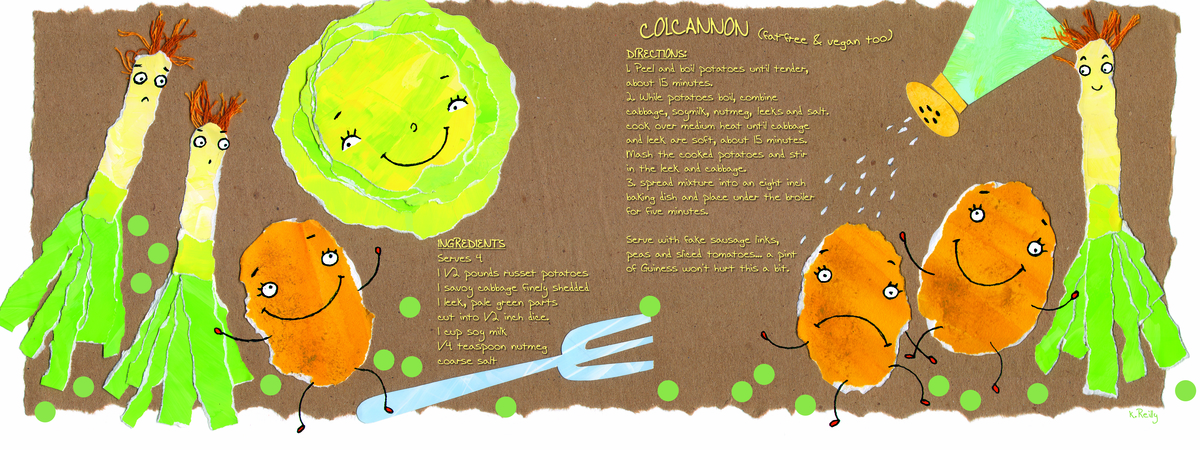 INGREDIENTS
Serves 4
1 1/2 pounds russet potatoes
1 savoy cabbage finely shedded
1 leek, pale green parts
cut into 1/2 inch dice.
1 cup soy milk
1/4 teaspoon nutmeg
coarse salt
COLCANNON (fat free & vegan too)
DIRECTIONS:
1. Peel and boil potatoes until tender,
about 15 minutes.
2. While potatoes boil, combine
cabbage, soymilk, nutmeg, leeks and salt.
cook over medium heat until cabbage
and leek are soft, about 15 minutes.
Mash the cooked potatoes and stir
in the leek and cabbage.
3. spread mixture into an eight inch
baking dish and place under the broiler
for five minutes.
Serve with fake sausage links,
peas and sliced tomatoes... a pint
of Guiness won't hurt this a bit.
K. Reilly